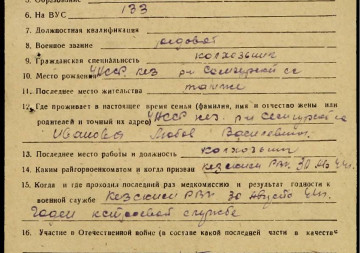 5. Образование
6. На ВУС 133
7. Должностная квалификация
8. Военное звание рядовой
9. Гражданская специальность колхозник
10. Место рождения УАССР Кез р-н
11. Последнее место жительства там же
12. Где проживает в настоящее время семья (фамилия, имя и отчество жены или
родителей и точный их адрес) УАССР Кез р-н
Иванова Любов Василевна
13. Последнее место работы и должность колхозник
14. Каким райгорвоенкоматом и когда призван Кезским РВК 30
15. Когда и где проходил последний раз медкомиссию и результат годности к
военной службе Кезским РВК 30 Августа
Годен к строевой службе
16. Участие в Отечественной войне (в составе какой последней части в качестве